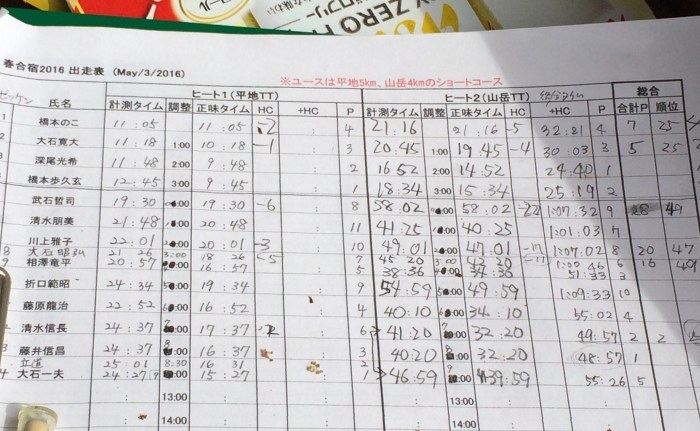 春合宿2016 出走表 (May/3/2016)
※ユースは平地5km、山岳4kmのショートコース
ヒート1(平地TT) ヒート2(山岳TT) 総合
ゼッケン 氏名 計測タイム 調整 正味タイム HC +HC P 計測タイム 調整 正味タイム HC +HC P 合計P 順位
橋本のこ 11:05 11:05 -2 : 4 21:16 21:16 -5 32:21 4 7 25
大石寛大 11:18 1:00 10:18 -1 : 3 20:45 1:00 19:45 -4 30:03 3 5 25
深尾光希 11:48 2:00 9:48 : 2 16 52 2:00 14:52 24:40 1
橋本歩久玄 12:45 3:00 9:45 : 1 18:34 3:00 15:34 25:19 2
武石哲司 19:30 19:30 -6 : 8 58:02 58:02 -22 1:07:32 9 28 49
清水朋美 21:48 20:48 : 11 41:25 40:25 1:01:03 7
川上雅子 22:01 20:01 -3 : 10 49:01 47:01 -17 1:07:02 8 20 47
8 大石昭弘 21 26 3:00 18 26 -5 7 45 20 3:00 42 20 -11 1:00 46 6 16 49
9 相澤竜平 20:57 16:57 : 5 38:36 34:36 51:33 3
折口範昭 24:34 19:34 : 9 54:59 49:59 1:09:33 10
藤原龍治 22:52 16:52 : 4 40:10 34:10 55:02 4
2 清水信長 24:37 17:37 : 6 41:20 32:20 49:57 2 2
3 藤井信昌 24:37 16:37 : 3 40:20 32:20 48:57 1
25 01 8:30 16 31 2
4 大石一夫 24:27 15:27 : 1 46:59 39:59 55:26 5
: 13:00 : : : 13:00 :
: 14:00 : : : 14:00 :